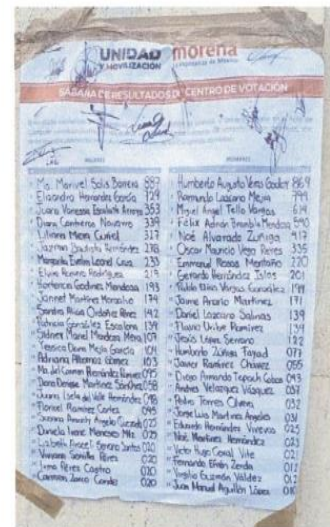 UNIDAD
Y MOVILIZACIÓN
morena
La esperanza de México
SÁBANA DE RESULTADOS DE CENTRO DE VOTACIÓN
MUJERES
Ma. Marivel Solis Barrera 887
Elisandra Hernández García 729
Juana Vanessa Escalante Arroyo 353
Diana Contreras Navarro 339
Juliana Mejia Curiel 317
Jazman Bautista Hernández 278
Margarita Evelin Leonel Cruz 233
Elvira Romero Rodríguez 219
Hortencia Godinez Mendosa 193
Jannet Martínez Monsalvo 174
Sandra Alicia Ordoñez Pérez 142
Patricia González Escalona 139
Sidney Mariel Mendoza Mera 107
Jessica Dane Mejia García 104
Adriana Albornoz Gómez 103
Ma. del Carmen Hernández Romero 095
Dana Denisse Martínez Sánchez 058
Juana Isela del Valle Hernández 048
Floricel Ramírez Cortes 045
Juanna Aracely Angeles Guezada 025
Daniela Ivone Meneses Mtz. 025
Lisbeth Anceel Sereno Santos 020
Viviana Senilla Pérez 020
Irma Pérez Castro 020
Carmen Zarco Conde 020
HOMBRES
Humberto Augusto Veras Godoy 869
Raimundo Lazcano Mejia 799
Miguel Angel Tello Vargas 614
Félix Adrian Brambila Mendoza 590
Noé Alvarado Zúñiga 417
Oscar Mauricio Vega Reyes 335
Emmanuel Rosas Montaño 220
Gerardo Hernández Islas 201
Pablo Elias Vargas González 199
Jaime Aranio Martínez 171
Daniel Lazcano Salinas 139
Flavio Uribe Ramírez 139
Jesús López Serrano 122
Humberto Zúñiga Tayad 077
Javier Ramírez Chávez 055
Diego Armando Tepach Cobos 043
Andres Velazquez Vázquez 037
Pedro Torres Olvera 032
Jorge Luis Martínez Angeles 031
Eduardo Hernández Viveros 025
Noé Martínez Hernández 023
Victor Hugo Coxal Vite 021
Fernando Efrén Zerda 012
Virgilio Guzmán Valdez 012
Juan Manuel Aguillón López 010